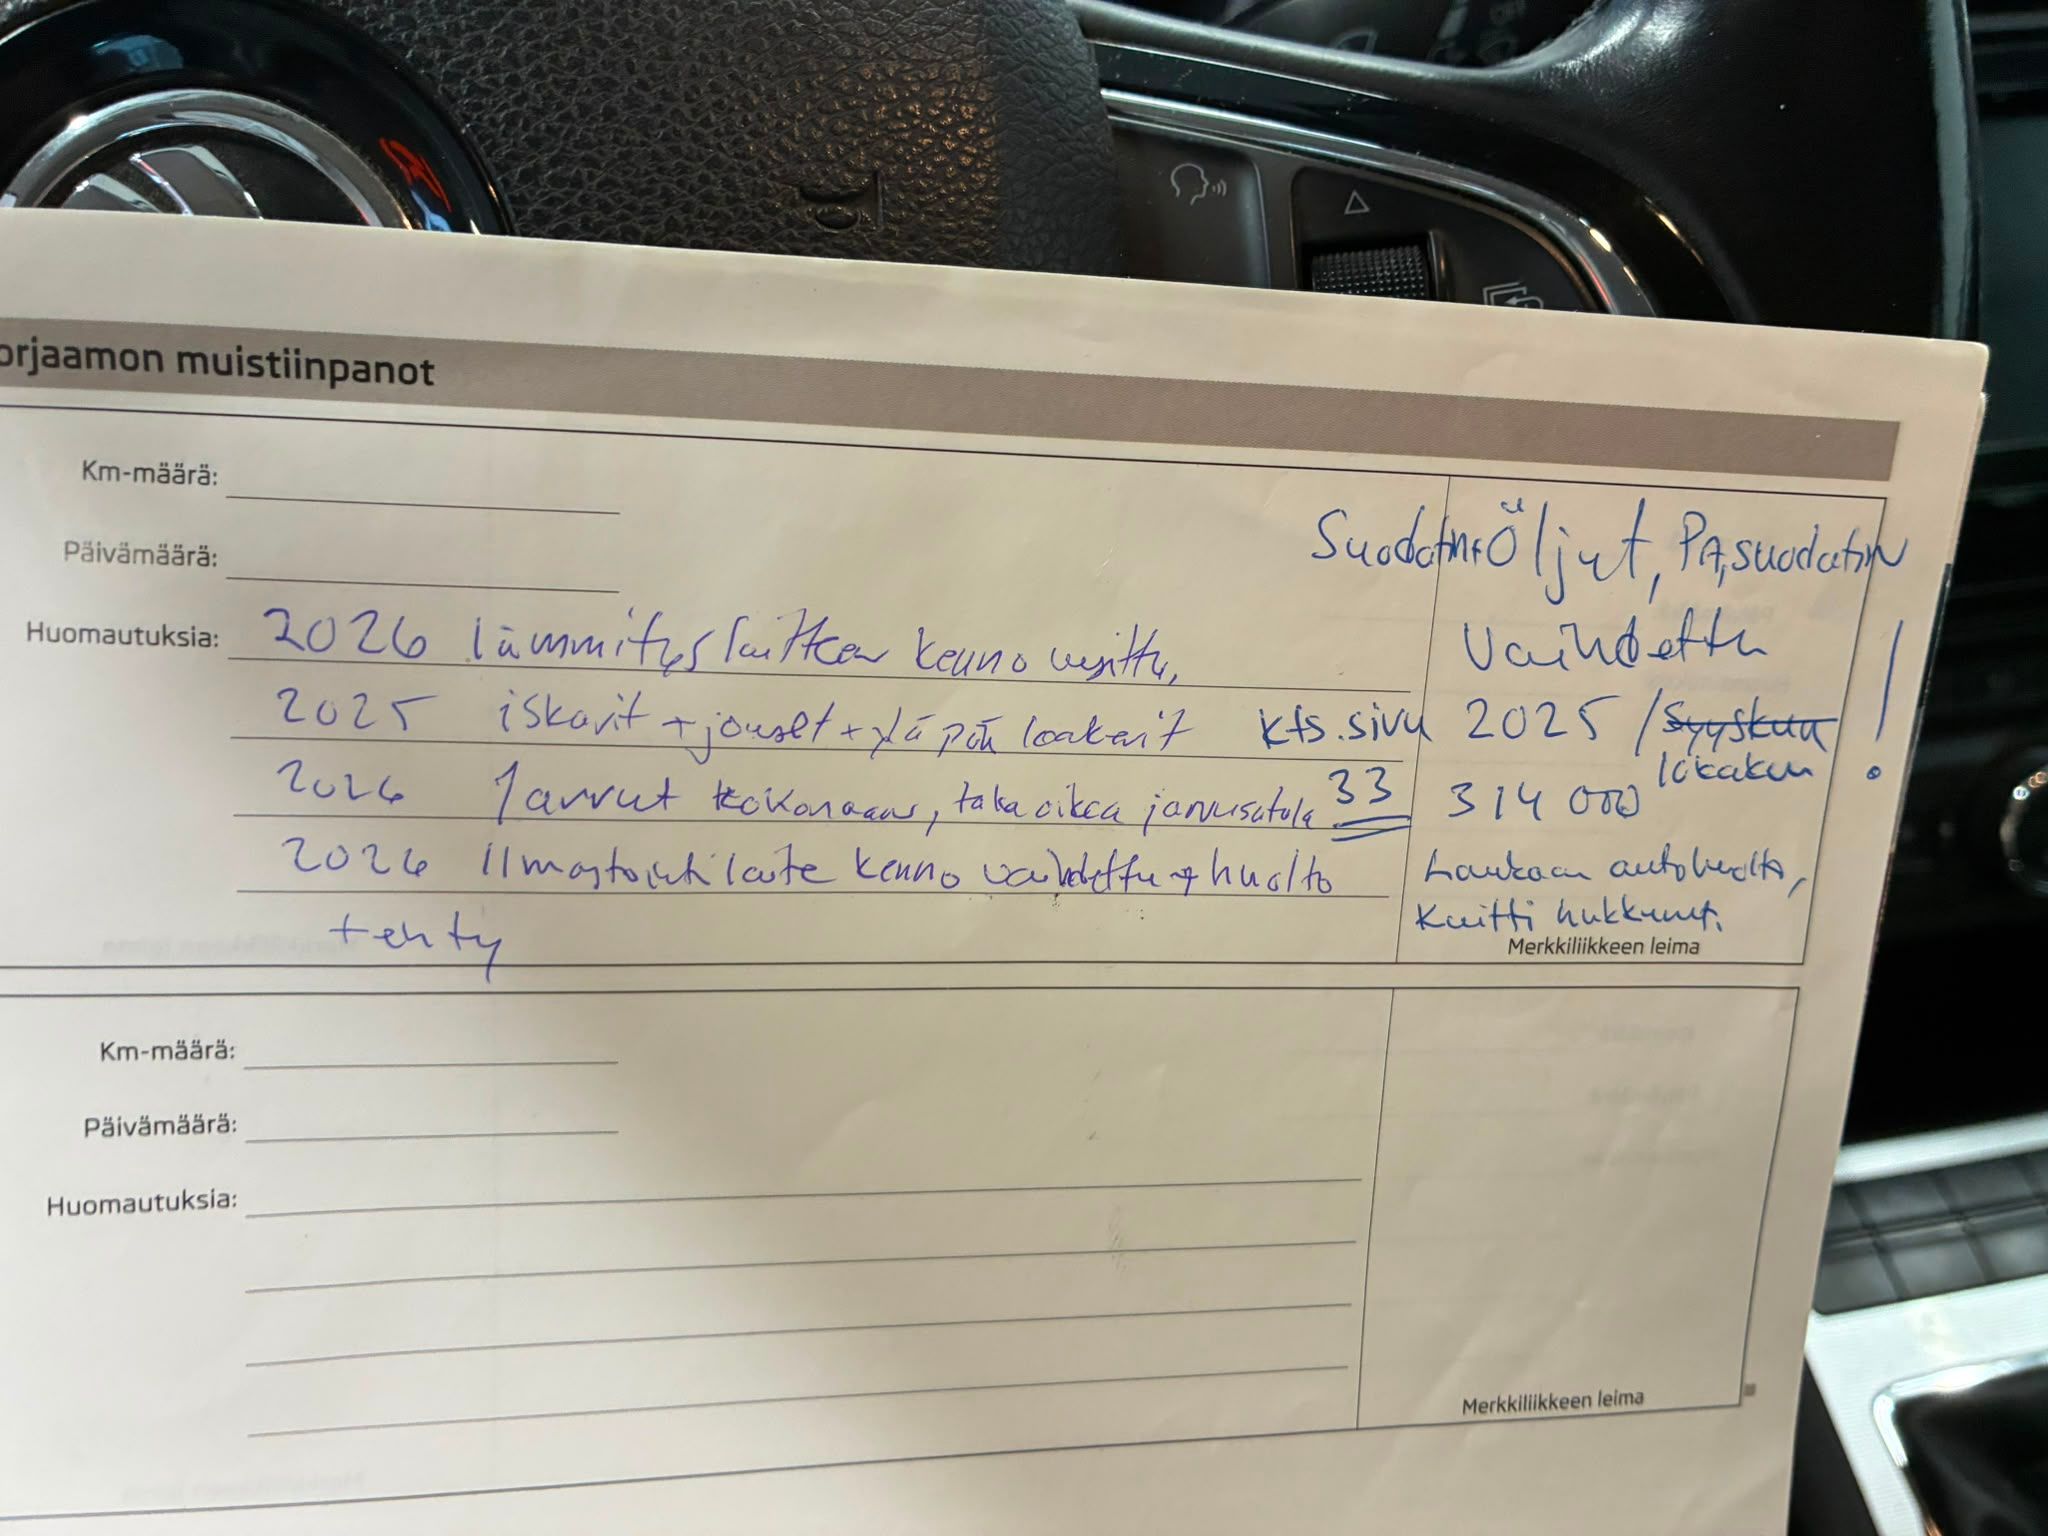 orjaamon muistiinpanot
Km-määrä:
Päivämäärä:
Huomautuksia: 2026 lämmityslaitteen kenno uusittu,
2025 iskarit + jouset + yläpään laakerit kts. sivu 33
2026 Jarrut kokonaan, taka oikea jarrusatula
2026 Ilmastointilaite kenno vaihdettu + huolto
tehty
Suodatin+Öljyt, PA,suodatin
Vaihdettu !
2025 / syyskuu
lokakuu
314 000
Laukaan autohuolto,
Kuitti hukkunut.
Merkkiliikkeen leima
Km-määrä:
Päivämäärä:
Huomautuksia:
Merkkiliikkeen leima